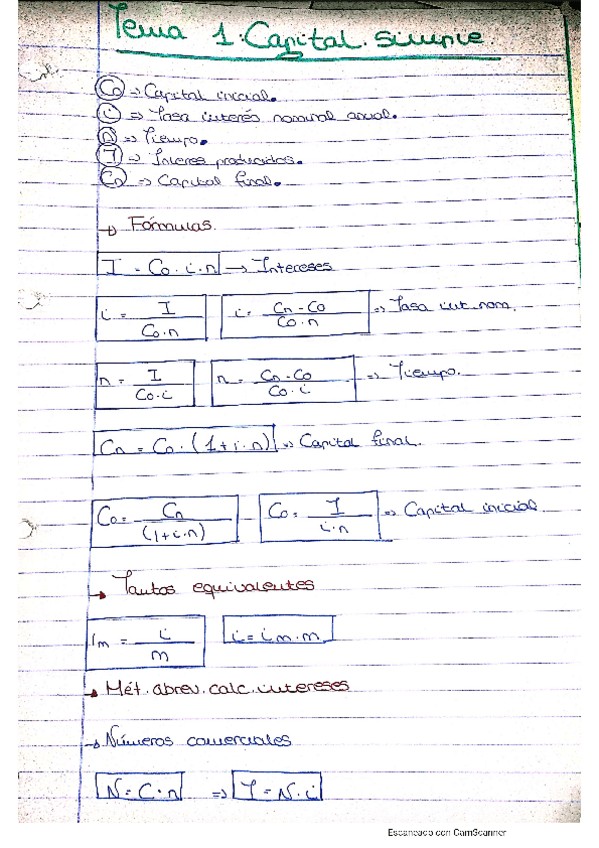 Tema 1. Capital. simple.
C0 ⇒ Capital inicial.
i ⇒ Tasa interés nominal anual.
n ⇒ Tiempo.
I ⇒ Interes producidos.
Cn ⇒ Capital final.
→ Fórmulas.
I = C0 · i · n → Intereses
i = I / C0 · n   i = Cn - C0 / C0 · n ⇒ Tasa int. nom.
n = I / C0 · i   n = C0 - C0 / C0 · i ⇒ Tiempo.
Cn = C0 · (1 + i · n) ⇒ Capital final.
C0 = Cn / (1 + i · n)   C0 = I / i · n ⇒ Capital inicial
→ Tantos equivalentes
im = i / m   i = im · m
→ Mét. abrev. calc. intereses
→ Números comerciales
N = C · n ⇒ I = N · i
Escaneado con CamScanner